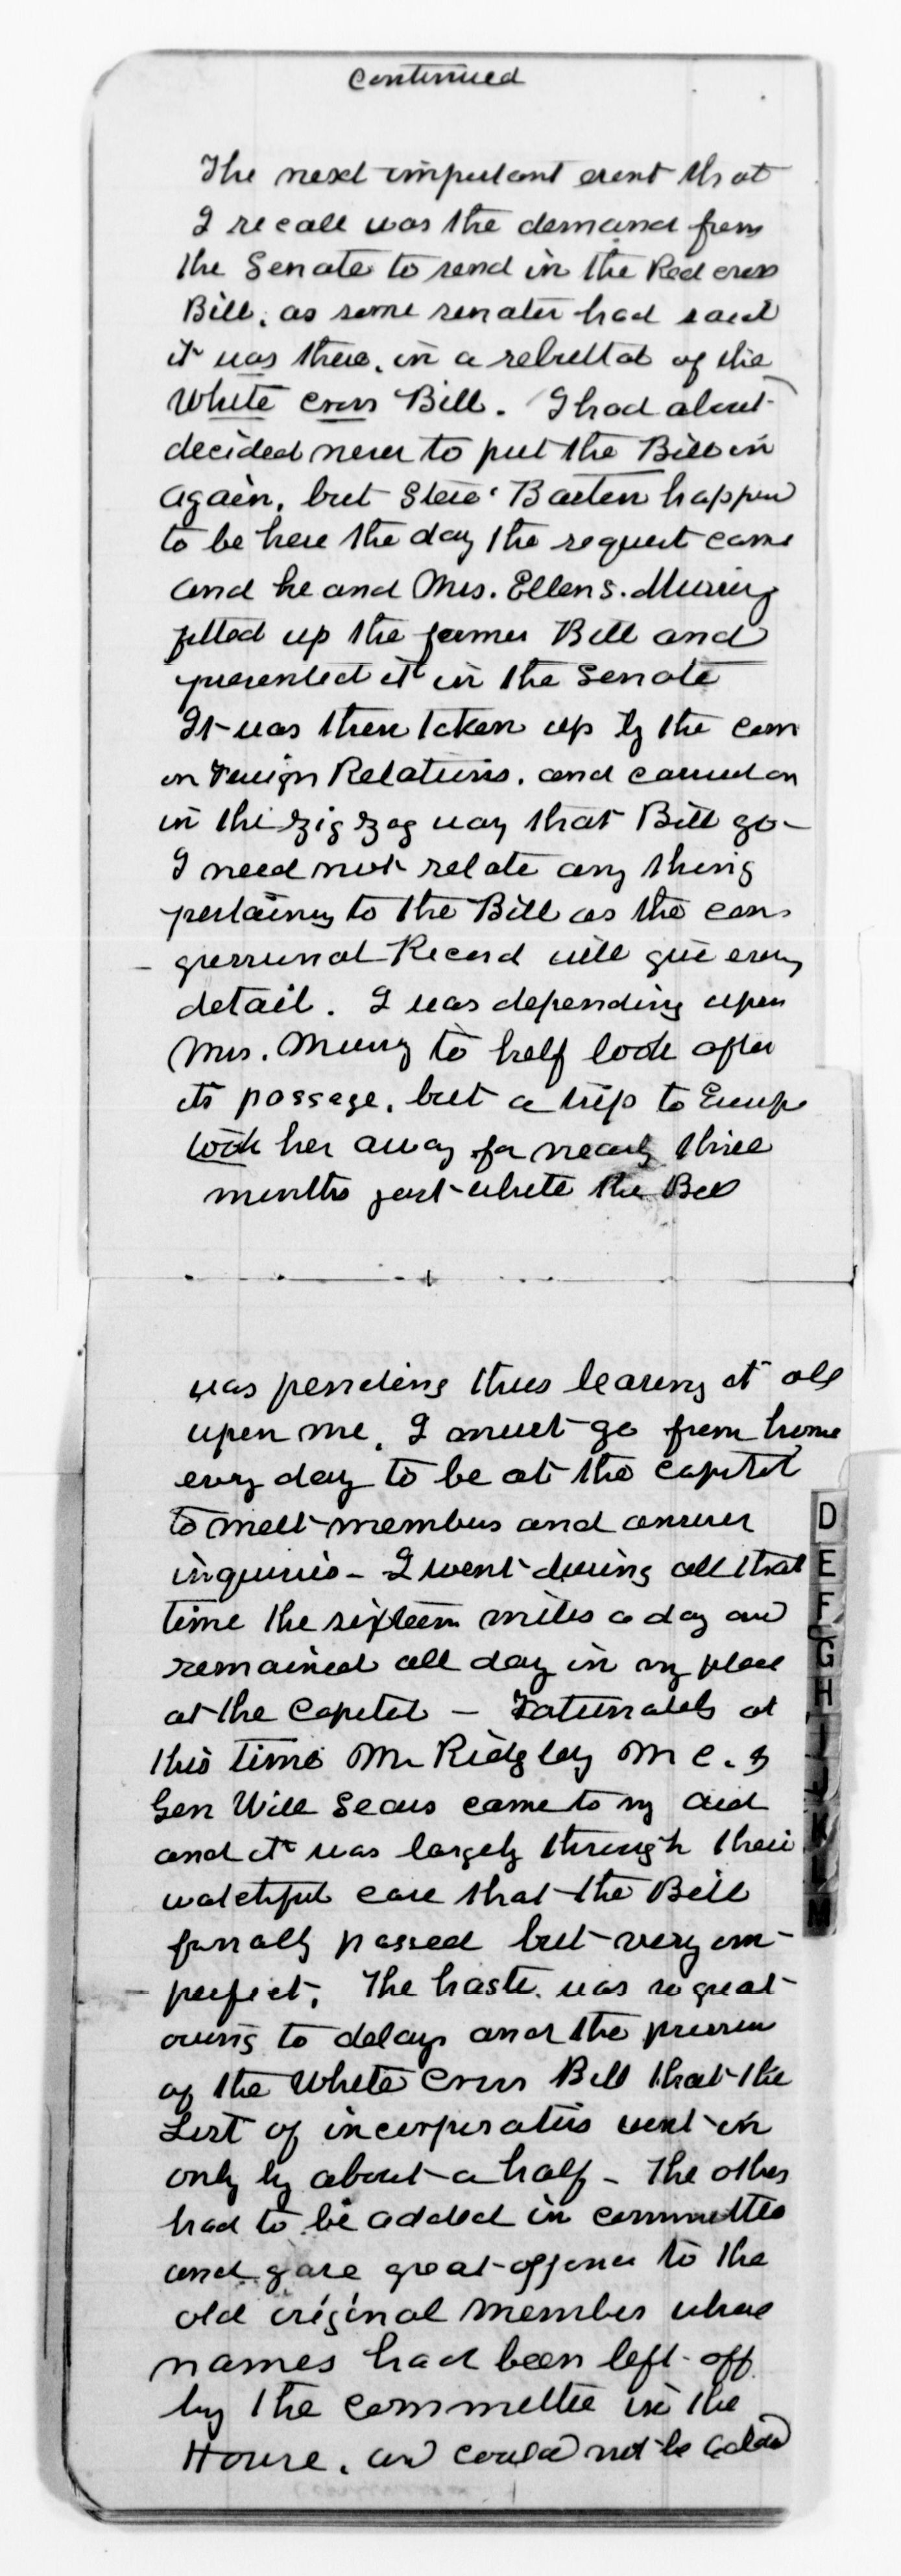 Continued
The next important event that
I recall was the demand from
the Senate to send in the Red cross
Bill, as some senator had said
it was there, in a rebuttal of the
White Cross Bill. I had about
decided never to put the Bill in
again, but Steve Barton happen
to be here the day the request came
and he and Mrs. Ellen S. Mussey
fitted up the former Bill and
presented it in the Senate
It was then taken up by the com
on Foreign Relations, and carried on
in the zig zag way that Bill go -
I need not relate any thing
pertaining to the Bill as the con-
gressional Record will give every
detail. I was depending upon
Mrs. Mussey to help look after
its passage, but a trip to Europe
took her away for nearly three
months just while the Bill
was pending thus leaving it all
upon me, I must go from home
every day to be at the capitol
to meet members and answer
inquiries - I went during all that
time the sixteen miles a day and
remained all day in my place
at the Capitol - Fortunately at
this time Mr Ridgley M C. &
Gen Will Sears came to my aid
and it was largely through their
watchful care that the Bill
finally passed but very im-
perfect. The haste was so great
owing to delays and the pressure
of the White Cross Bill that the
List of incorporators went in
only by about a half - The others
had to be added in committee
and gave great offence to the
old original members whose
names had been left off
by the committee in the
House, and could not be added
D
E
F
G
H
I
J
K
L
M